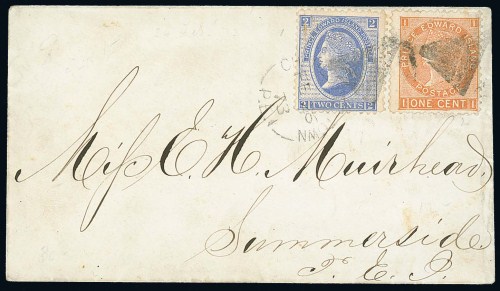 2 PRINCE EDWARD ISLAND POSTAGE 2
2 TWO CENTS 2
1 PRINCE EDWARD ISLAND 1
POSTAGE
1 ONE CENT 1
Miss E. H. Muirhead,
Summerside,
P. E. I.